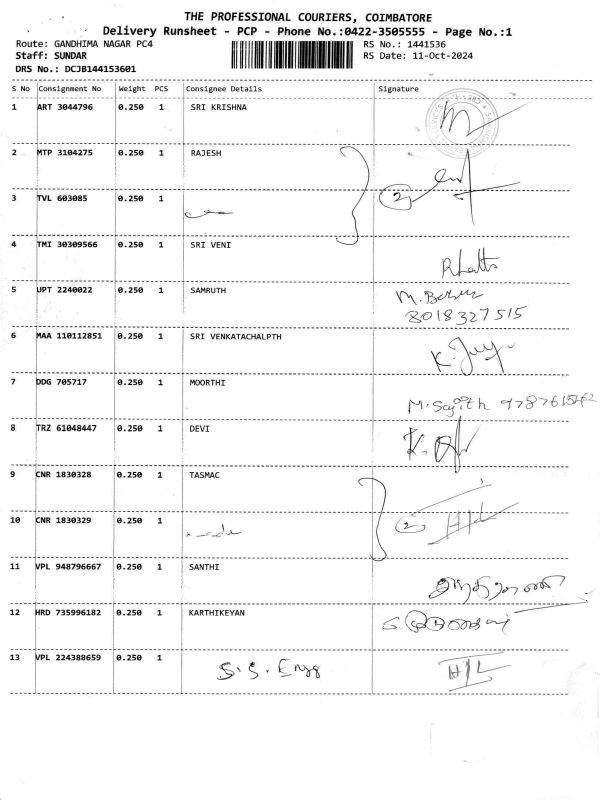 THE PROFESSIONAL COURIERS, COIMBATORE
Delivery Runsheet - PCP - Phone No.:0422-3505555 - Page No.:1
Route: GANDHIMA NAGAR PC4 RS No.: 1441536
Staff: SUNDAR RS Date: 11-Oct-2024
DRS No.: DCJB144153601
S No Consignment No Weight PCS Consignee Details Signature
1 ART 3044796 0.250 1 SRI KRISHNA
2 MTP 3104275 0.250 1 RAJESH
2
3 TVL 603085 0.250 1
4 TMI 30309566 0.250 1 SRI VENI
5 UPT 2240022 0.250 1 SAMRUTH M.
8018327515
6 MAA 110112851 0.250 1 SRI VENKATACHALPTH K.
7 DDG 705717 0.250 1 MOORTHI M. Sajith
8 TRZ 61048447 0.250 1 DEVI K.
9 CNR 1830328 0.250 1 TASMAC
10 CNR 1830329 0.250 1 2 H/L
11 VPL 948796667 0.250 1 SANTHI
12 HRD 735996182 0.250 1 KARTHIKEYAN
13 VPL 224388659 0.250 1 S.S. Engg H/L